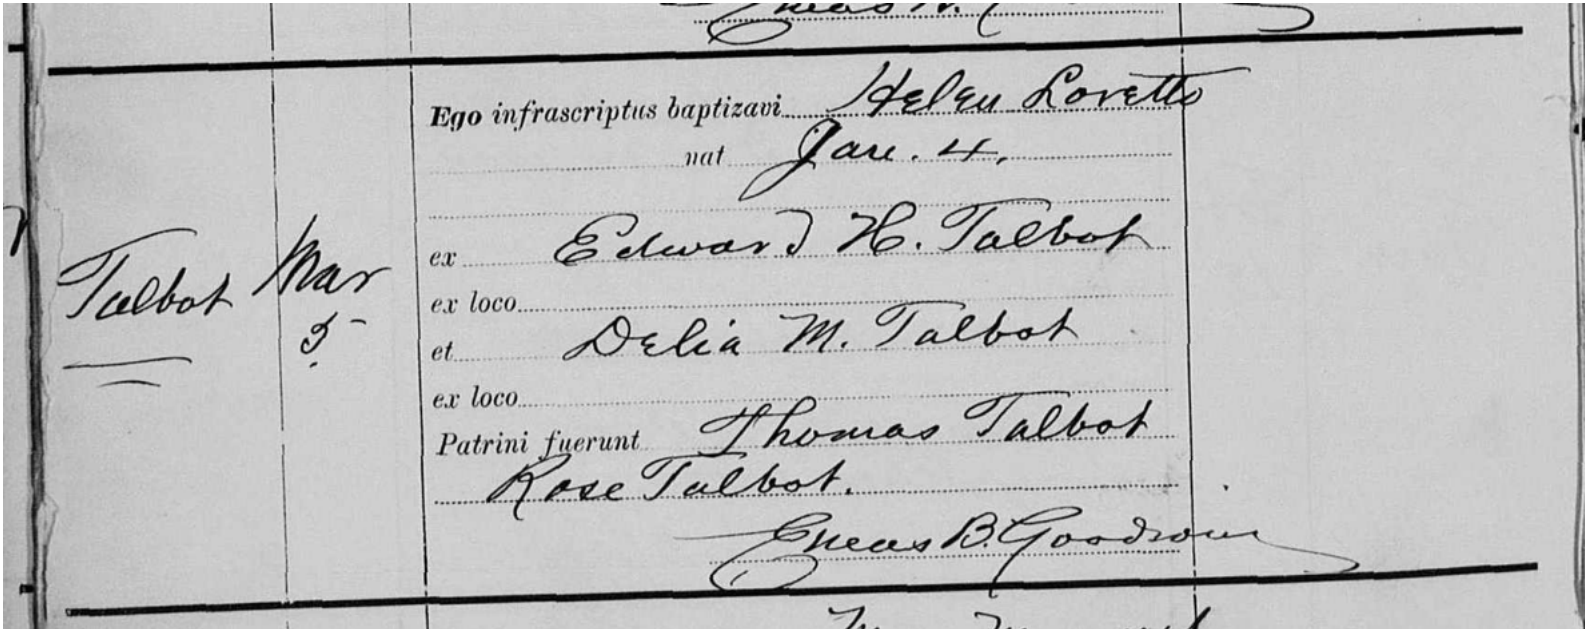 Talbot
Mar
5
Ego infrascriptus baptizavi Helen Loretto
nat Jan. 4.
ex Edward H. Talbot
ex loco
et Delia M. Talbot
ex loco
Patrini fuerunt Thomas Talbot
Rose Talbot.
Eneas B. Goodwin